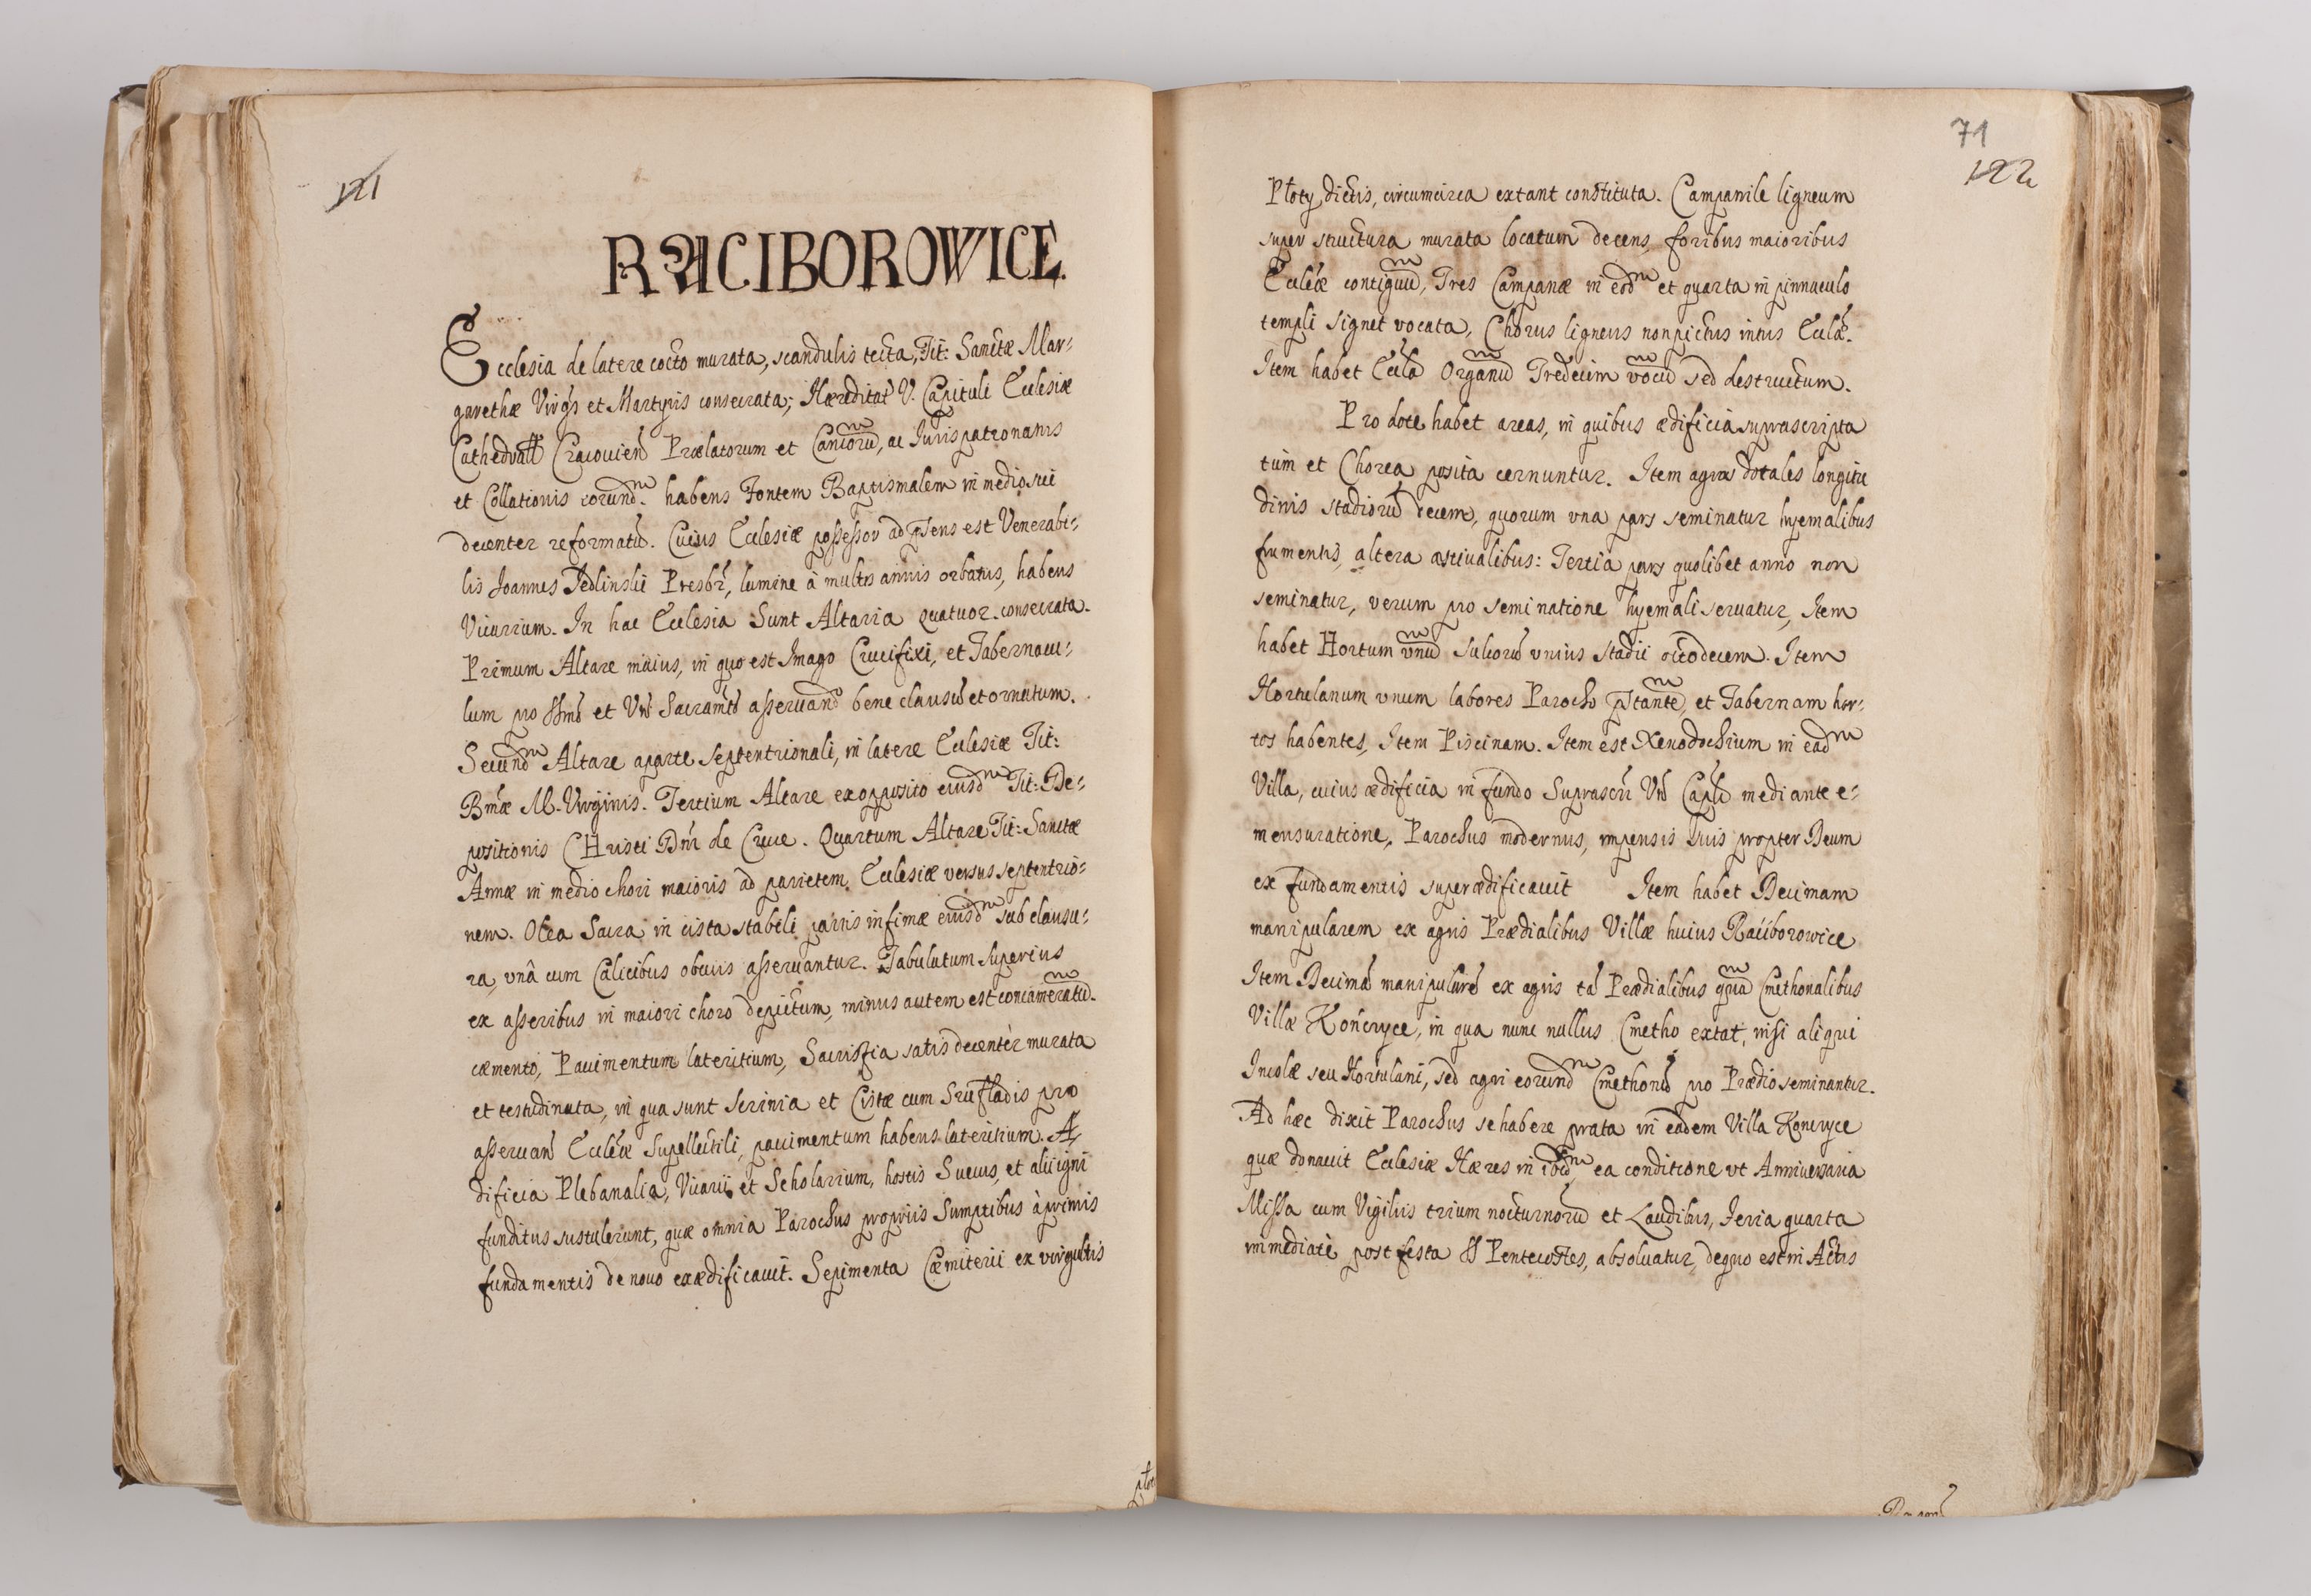 121
RACIBOROWICE.
Ecclesia de latere cocto murata, scandulis tecta, Tit: Sanctæ Mar-
garethæ Virgs et Martyris consecrata; Hæreditat V. Capituli Ecclesiæ
Cathedrall Cracouien Prælatorum et Canicorū, ac Iurispatronatus
et Collationis eorundm. habens Fontem Baptismalem in medio sui
decenter reformatū. Cuius Ecclesiæ possessor ad psens est Venerabi-
lis Joannes Jedlinskii Presbr, lumine à multis annis orbatus, habens
Vicarium. In hac Ecclesia Sunt Altaria quatuor consecrata.
Primum Altare maius, in quo est Imago Crucifixi, et Tabernacu-
lum pro SSmo et Vn Sacramto asseruand bene clausū et ornatum.
Secundm Altare aparte septentrionali, in latere Ecclesiæ Tit:
Bmæ M. Virginis. Tertium Altare ex opposito eiusdm Tit: De-
positionis CHristi Dni de Cruce. Quartum Altare Tit: Sanctæ
Annæ in medio chori maioris ad parietem Ecclesiæ versus septentrio-
nem. Olea Sacra in cista stabili partis infimæ eiusdm sub clausu-
ra, vnâ cum Calicibus obuiis asseruantur. Tabulatum superius
ex asseribus in maiori choro depictum, minus autem est concameratū.
cæmento, Pauimentum lateritium, Sacristia satis decentèr murata
et testudinata, in qua sunt Scrinia et Cistæ cum Sufladis pro
asseruan Eccleæ Supellectili, pauimentum habens lateritium. Æ-
dificia Plebanalia, Vicarii et Scholarium, hostis Suecus, et alii igni
funditus sustulerunt, quæ omnia Parochus propriis Sumptibus à primis
fundamentis de nouo exædificauit. Sepimenta Cæmiterii ex virgultis
płot
71
122
Płoty dictis, circumcirca extant constituta. Campanile ligneum
super structura murata locatum decens, foribus maioribus
Eccleæ contiguū, Tres Campanæ in eodm et quarta in pinnaculo
templi signet vocata, Chorus ligneus non pictus intus Ecclæ.
Item habet Eccla Organū Tredecim vocū sed destructum.
Pro dote habet areas, in quibus ædificia suprascripta
tum et Chorea posita cernuntur. Item agros dotales longitu
dinis stadiorū decem, quorum vna pars seminatur hyemalibus
frumentis, altera æstiualibus: Tertia pars quolibet anno non
seminatur, verum pro seminatione hyemali seruatur, Item
habet Hortum vnū sulcorū vnius stadii octodecem. Item
Hortulanum vnum labores Parocho pstantē, et Tabernam hor-
tos habentes, Item Piscinam. Item est Xenodochium in eadm
Villa, cuius ædificia in fundo Suprascri Vn Capli mediante e-
mensuratione, Parochus modernus, impensis suis propter Deum
ex fundamentis superædificauit Item habet Decimam
manipularem ex agris Prædialibus Villæ huius Raciborowice
Item Decimā manipularē ex agris tā Prædialibus quā Cmethonalibus
Villæ Kończyce, in qua nunc nullus Cmetho extat, nisi aliqui
Incolæ seu Hortulani, sed agri eorundm Cmethonū pro Prædio seminantur.
Ad hæc dixit Parochus se habere prata in eadem Villa Konczyce
quæ donauit Ecclesiæ Hæres in ibidm, ea conditione vt Anniuersaria
Missa cum Vigiliis trium nocturnorū et Laudibus, Feria quarta
immediatè post festa SS Pentecostes, absoluatur, de quo est in Actis